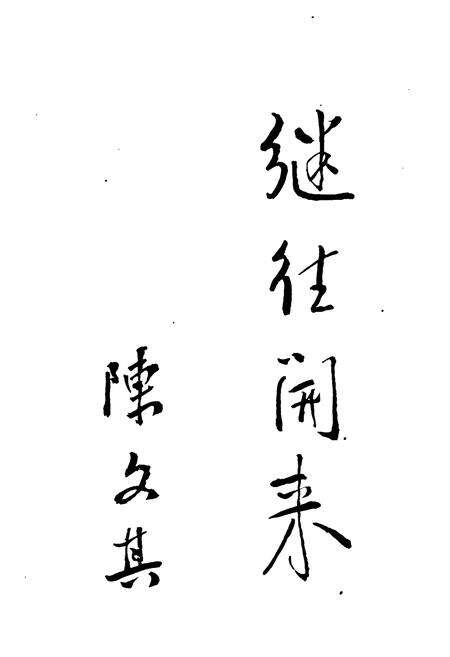 继往開来
陳文其